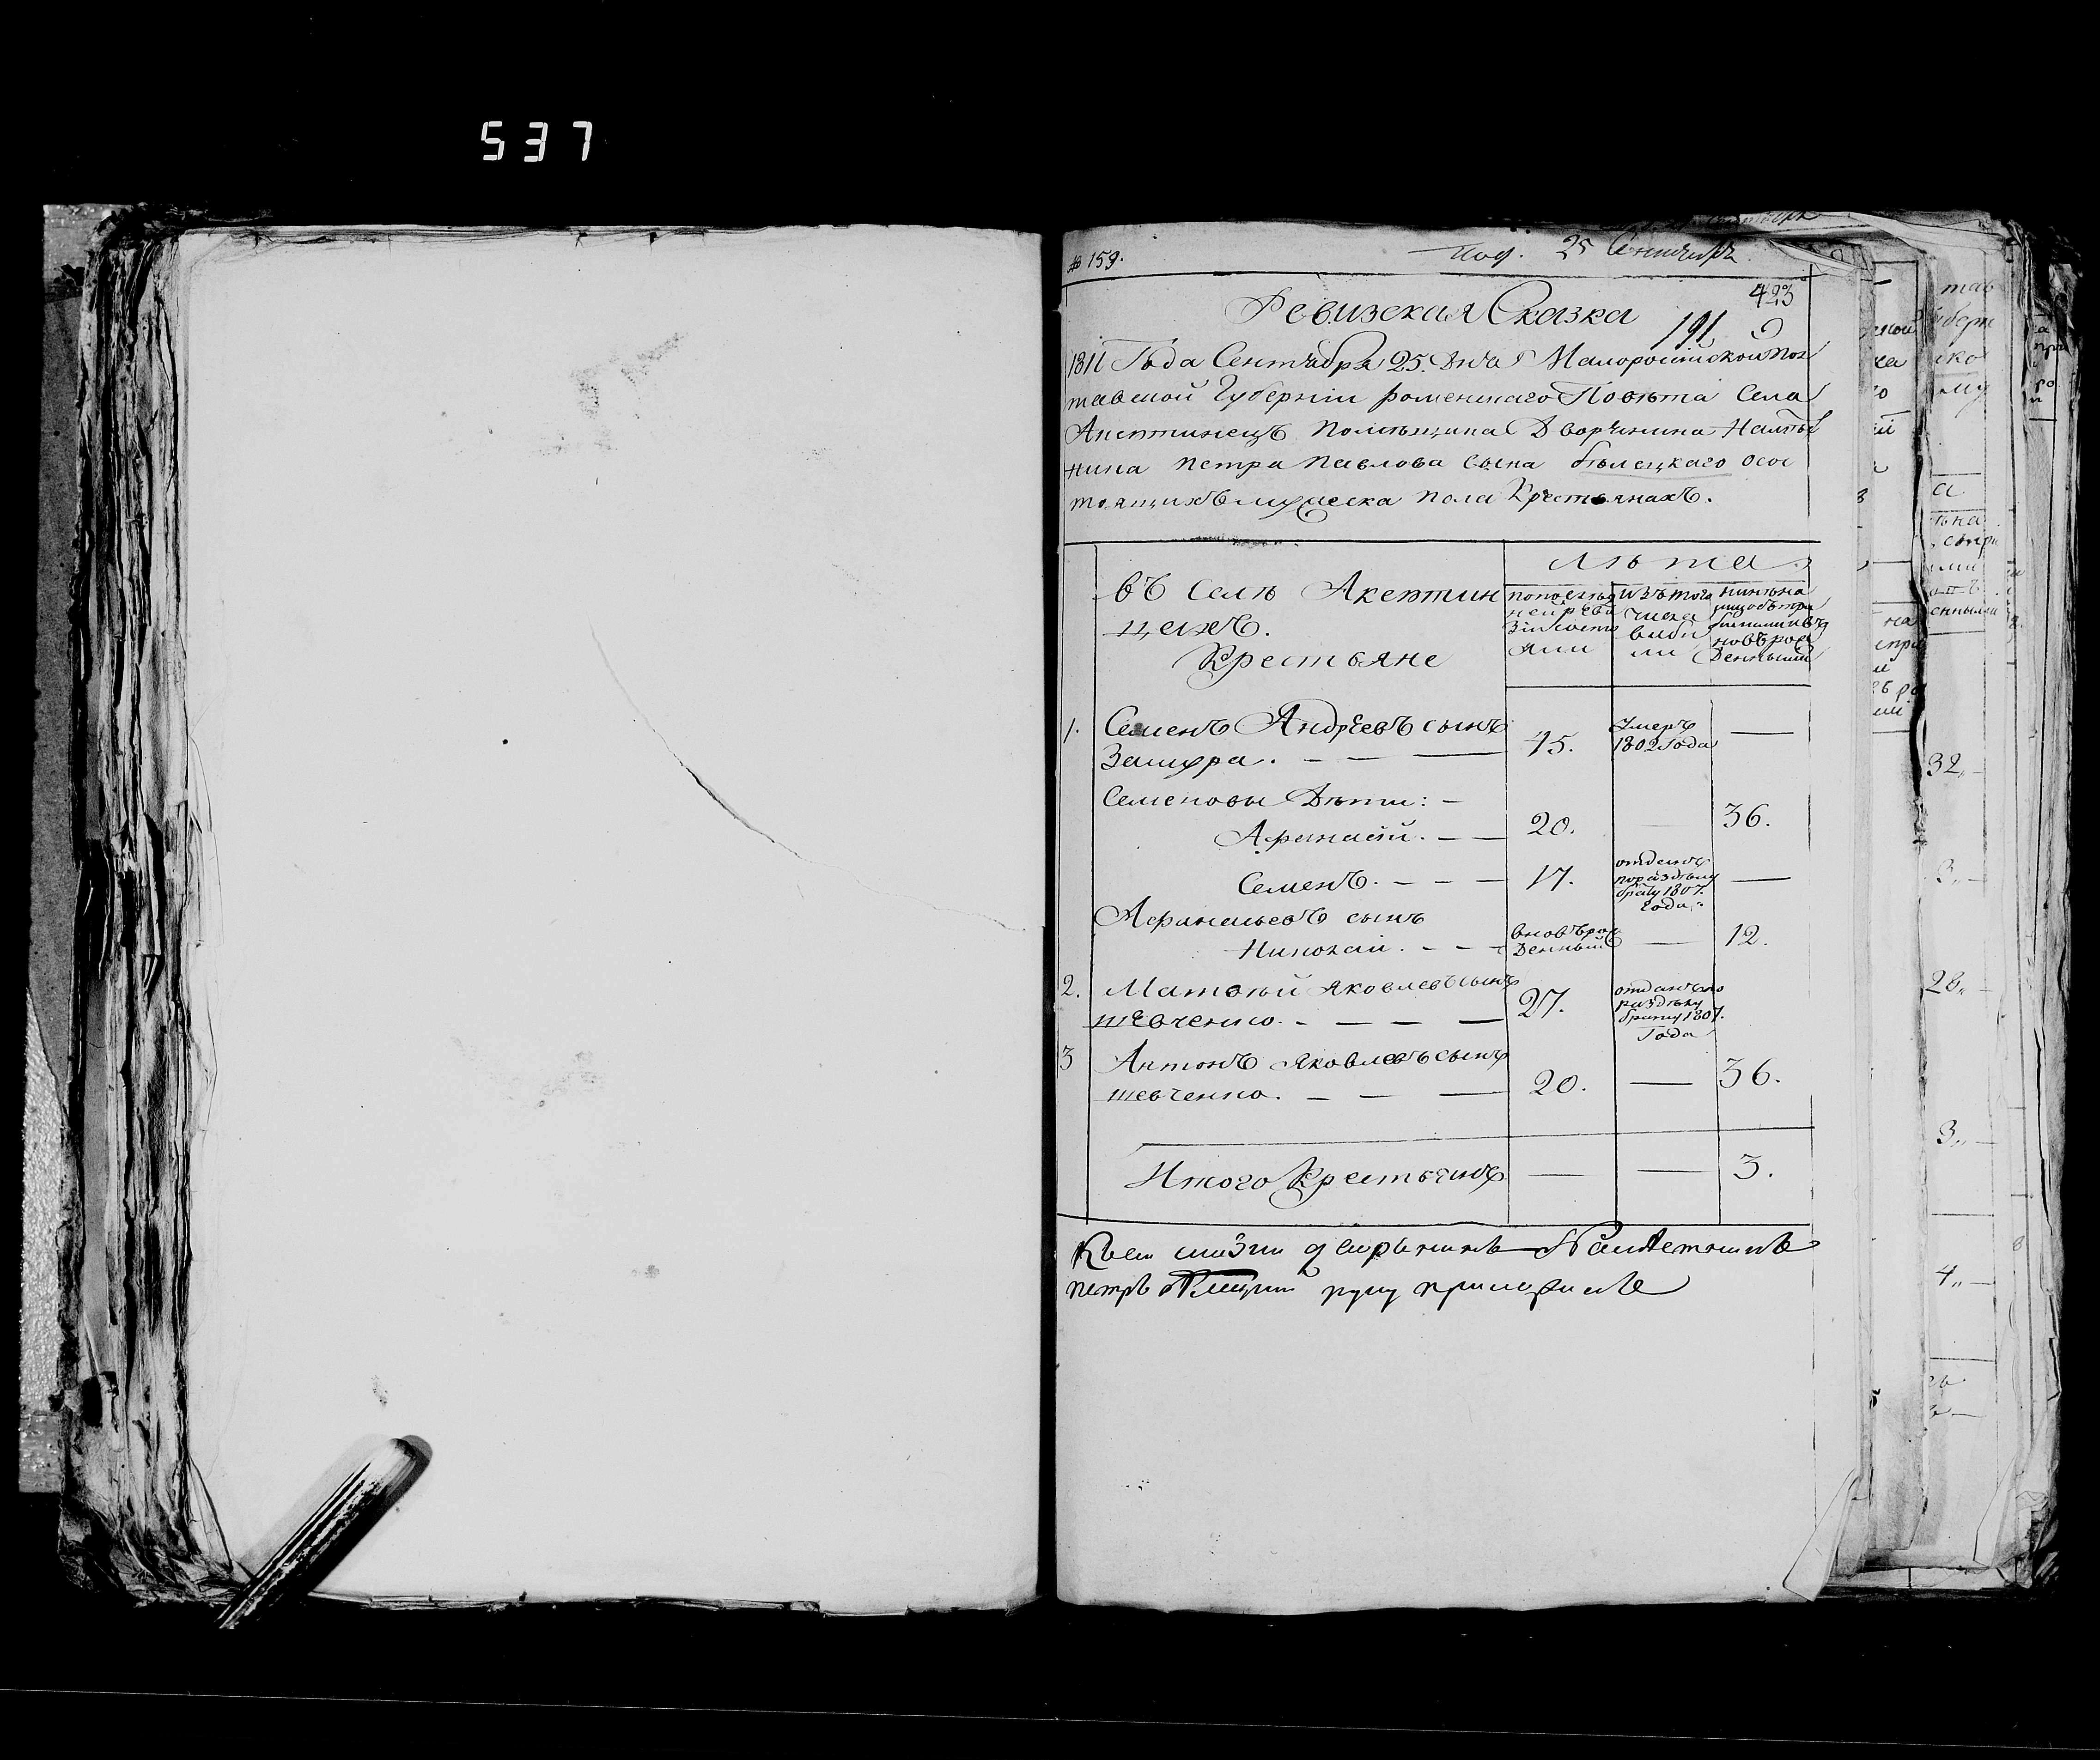 537
№ 159.
Под. 25 Сентября
423
Ревизская Сказка
191
1811 Года Сентября 25. Дня Малороссийской Пол
тавской Губернии роменскаго Повѣта Села
Аксютинецъ помѣщика Дворянина
Петра Павлова сына бѣлецкаго осос
тоящихъ мужеска пола Крестьянахъ.
въ Селѣ Аксютин
цахъ.
Крестьяне
лѣта
по послѣд
ней реви
зіи состо
яли
изъ того
числа
выбы
ли
нынѣ на
лицо съ при
былыми и въ
новь рож
денными
1. Семенъ Андреевъ сынъ
Замура. — 45. Умеръ 1802 Года —
Семеновы Дѣти: —
Афанасій. — 20. — 36.
Семенъ. — 17. отданъ по раздѣлу брату 1807. года —
Афанасьевъ сынъ
Николай. — вновь рож денный — 12.
2. Матвѣй Яковлевъ сынъ
шевченко. — 27. отданъ по раздѣлу брату 1807. Года
3 Антонъ Яковлевъ сынъ
шевченко. — 20. — 36.
Итого Крестьянъ — — 3.
К сей сказки дворянинъ
петръ Бѣлецкий руку приложилъ
32,, —
3,, —
28,, —
3,, —
4,, —